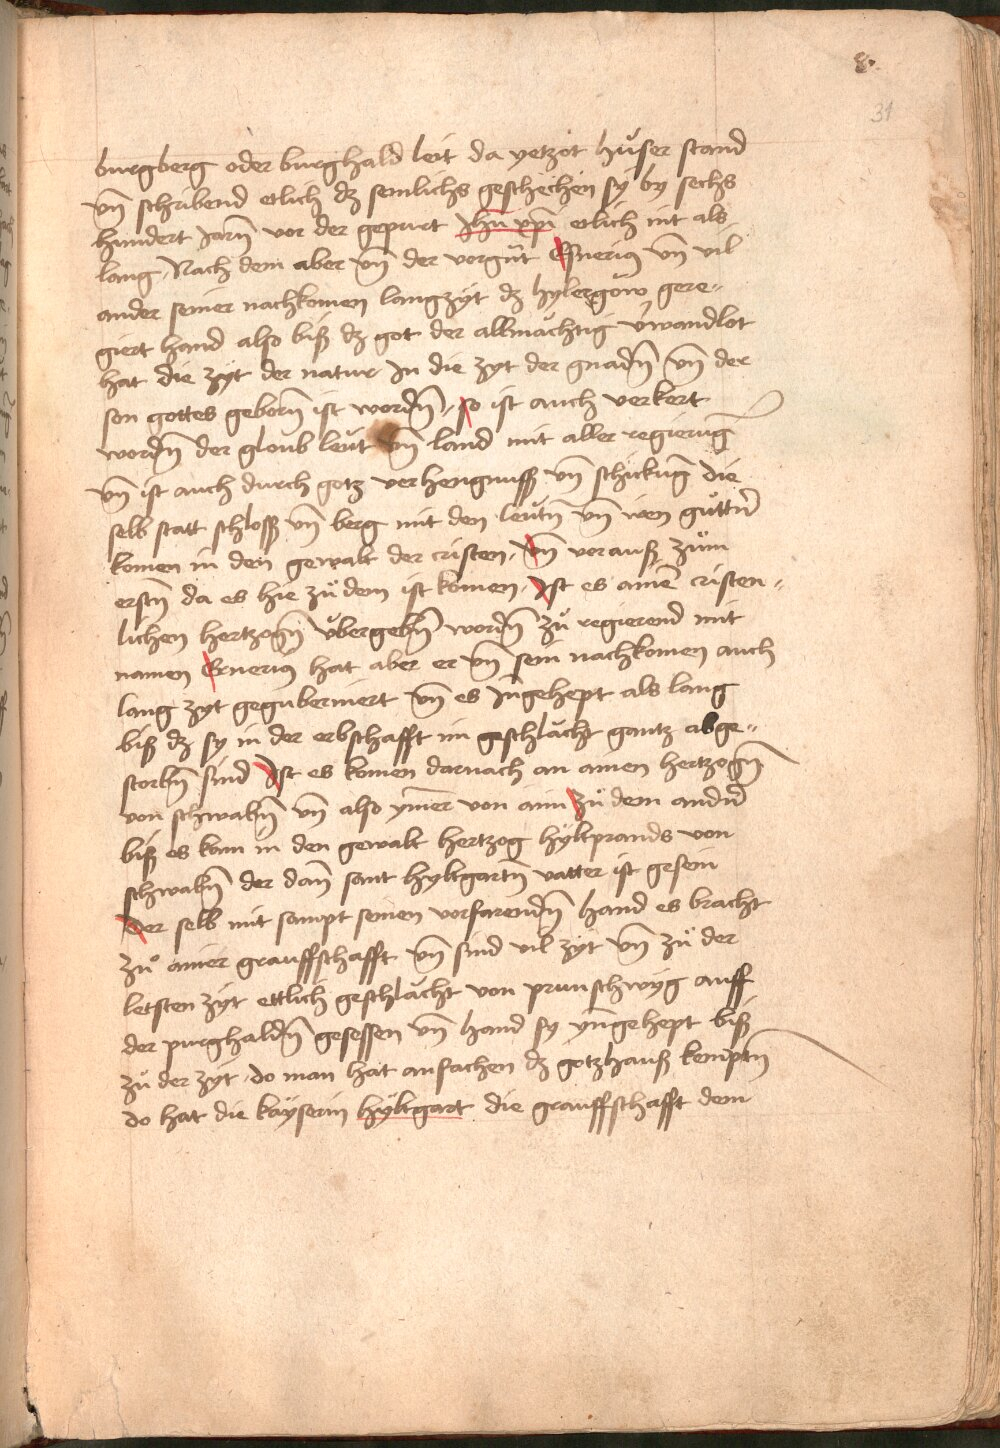 8.
31
burgberg oder burghald leit da yetzot hüser stand
vn̄ schribend etlich dz semlichs geschechen sy by sechs
hundert Jarn̄ vor der gepurt Jhū xp̄i etlich nit als
lang, Nach dem aber vn̄ der vorgūt Esnerius vn̄ vil
ander seiner nachkomen langzÿt dz hylergöw gere„
giert hand also biß dz got der allmächtig v̓wandlot
hat die zÿt der natur In die zyt der gnadn̄ vn̄ der
son gottes geborn̄ ist wordn̄, so ist auch verkert
wordn̄ der gloub leüt vn̄ land mit aller regierūg
vn̄ ist auch durch gotz verhengnuß vn̄ schickūg die
selb statt schloß vn̄ berg mit den leütn̄ vn̄ iren güttn̄
komen in den gewalt der cristen, vn̄ vorauß zům
erstn̄ da es hie zů dem ist komen, Ist es ainē cristen„
lichen hertzogn̄ übergebn̄ wordn̄ zů regierend mit
namen Ernerius hat aber er vn̄ sein nachkomen auch
lang zyt geguberniert vn̄ es Jngehept als lang
biß dz sy in der erbschafft im geschlächt gantz abge„
storbn̄ sind Ist es komen darnach an ainen hertzogn̄
von schwabn̄ vn̄ also ymer von aim zů dem andn̄
biß es kam in den gewalt hertzog hyltprands von
schwabn̄ der dan̄ sant hyltgartn̄ vatter ist gesein
Der selb mit sampt seinen vorfarendn̄ hand es bracht
zů ainer grauffschafft vn̄ sind vil zÿt vn̄ zů der
letsten zÿt ettlich geschlächt von prunschwyg auff
der purghaldn̄ gesessen vn̄ hand sy yn̄gehept biß
zů der zÿt, do man hat anfachen dz gotzhauß kemptn̄
do hat die käyserin hyltgart die grauffschafft dem